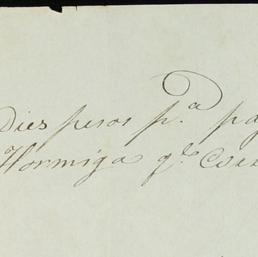 Dies pesos p.ª pag
Hormiga q.e Cose